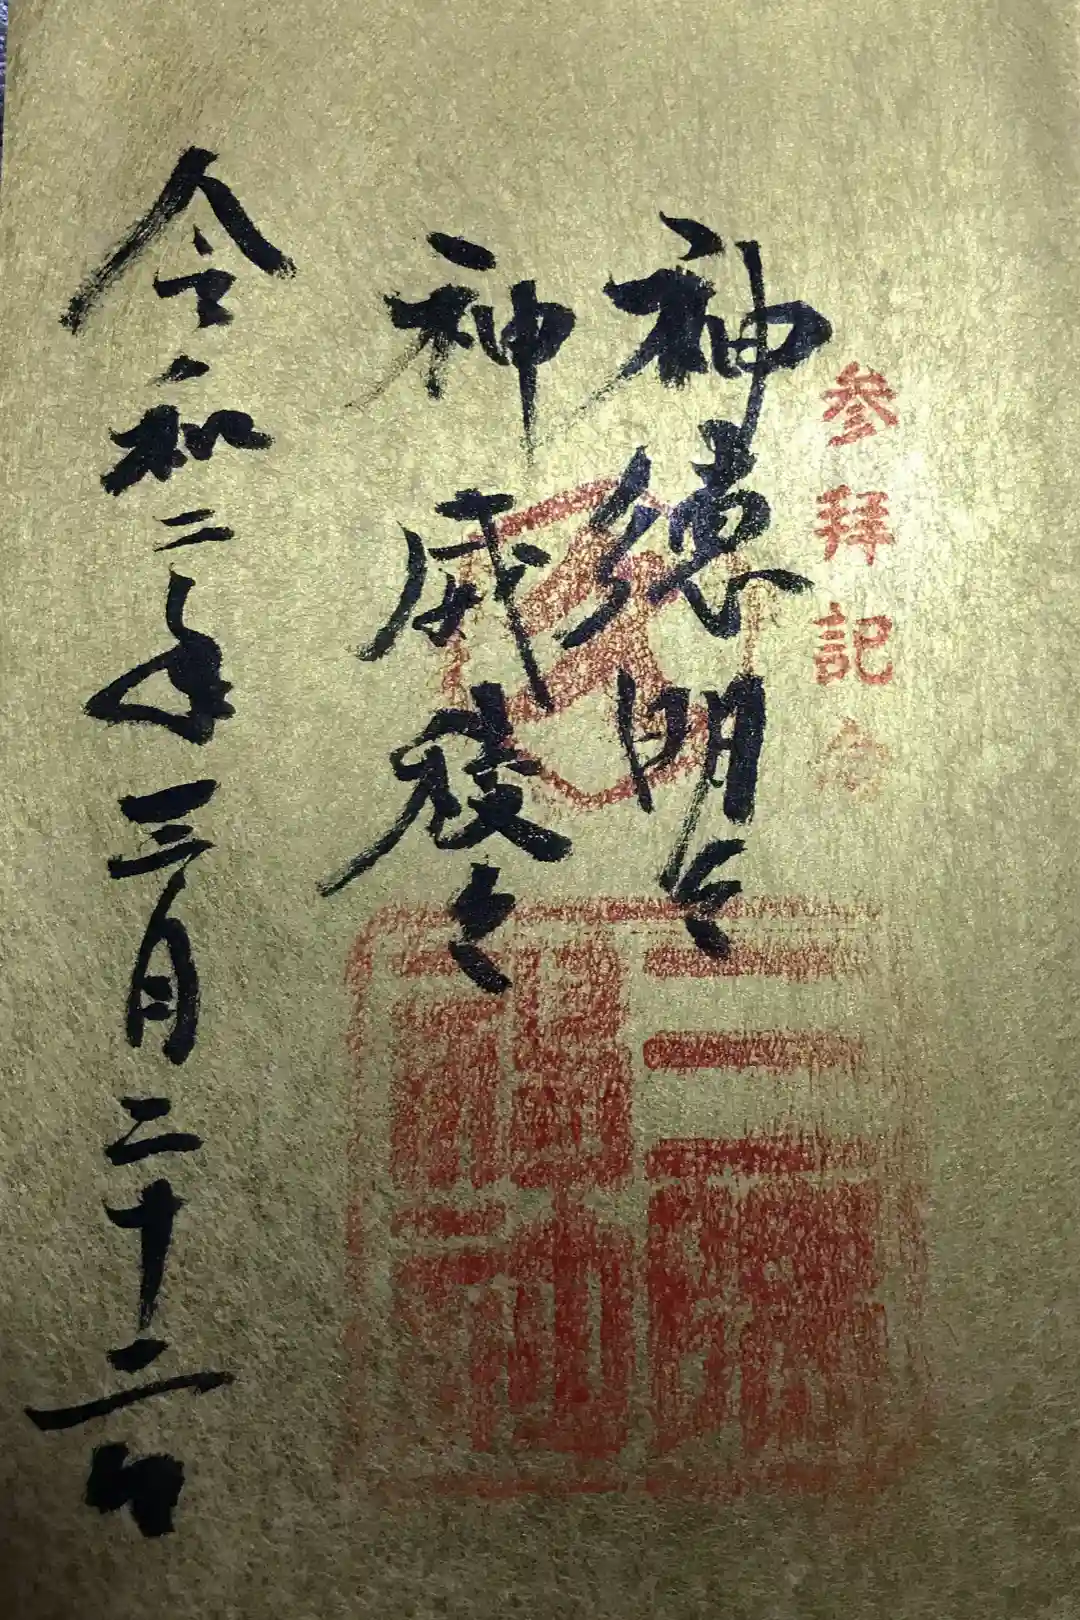 参拝記念
神徳明々
神威稜々
令和二年三月二十二日
神社